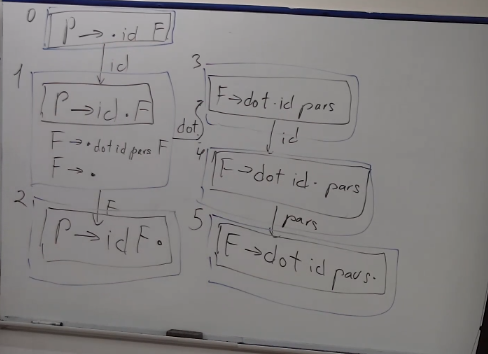 0
P → · id F
id
1
P → id · F
F → · dot id pars F
F → ·
F
2
P → id F ·
dot
3
F → dot · id pars
id
4
F → dot id · pars
pars
5
F → dot id pars ·